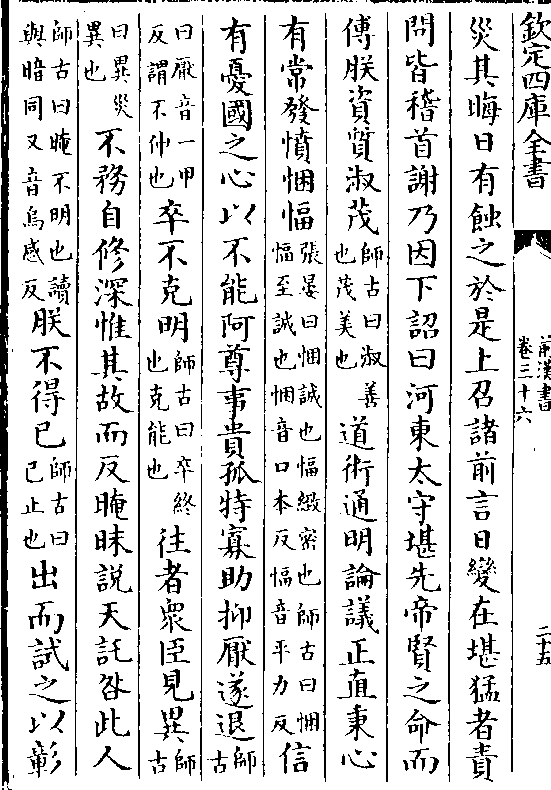 欽定四庫全書
前漢書
卷三十六
二十五
災其晦日有蝕之於是上召諸前言日變在堪猛者責
問皆稽首謝乃因下詔曰河東太守堪先帝賢之命而
傅朕資質淑茂師古曰淑善也茂美也道術通明論議正直秉心
有常發憤悃愊張晏曰悃誠也愊緻密也師古曰悃愊至誠也悃音口本反愊音平力反信
有憂國之心以不能阿尊事貴孤特寡助抑厭遂退師古
曰厭音一甲反謂不伸也卒不克明師古曰卒終也克能也往者衆臣見異師古
曰異災異也不務自修深惟其故而反晻昧說天託咎此人
師古曰晻不明也讀與暗同又音烏感反朕不得已師古曰已止也出而試之以彰